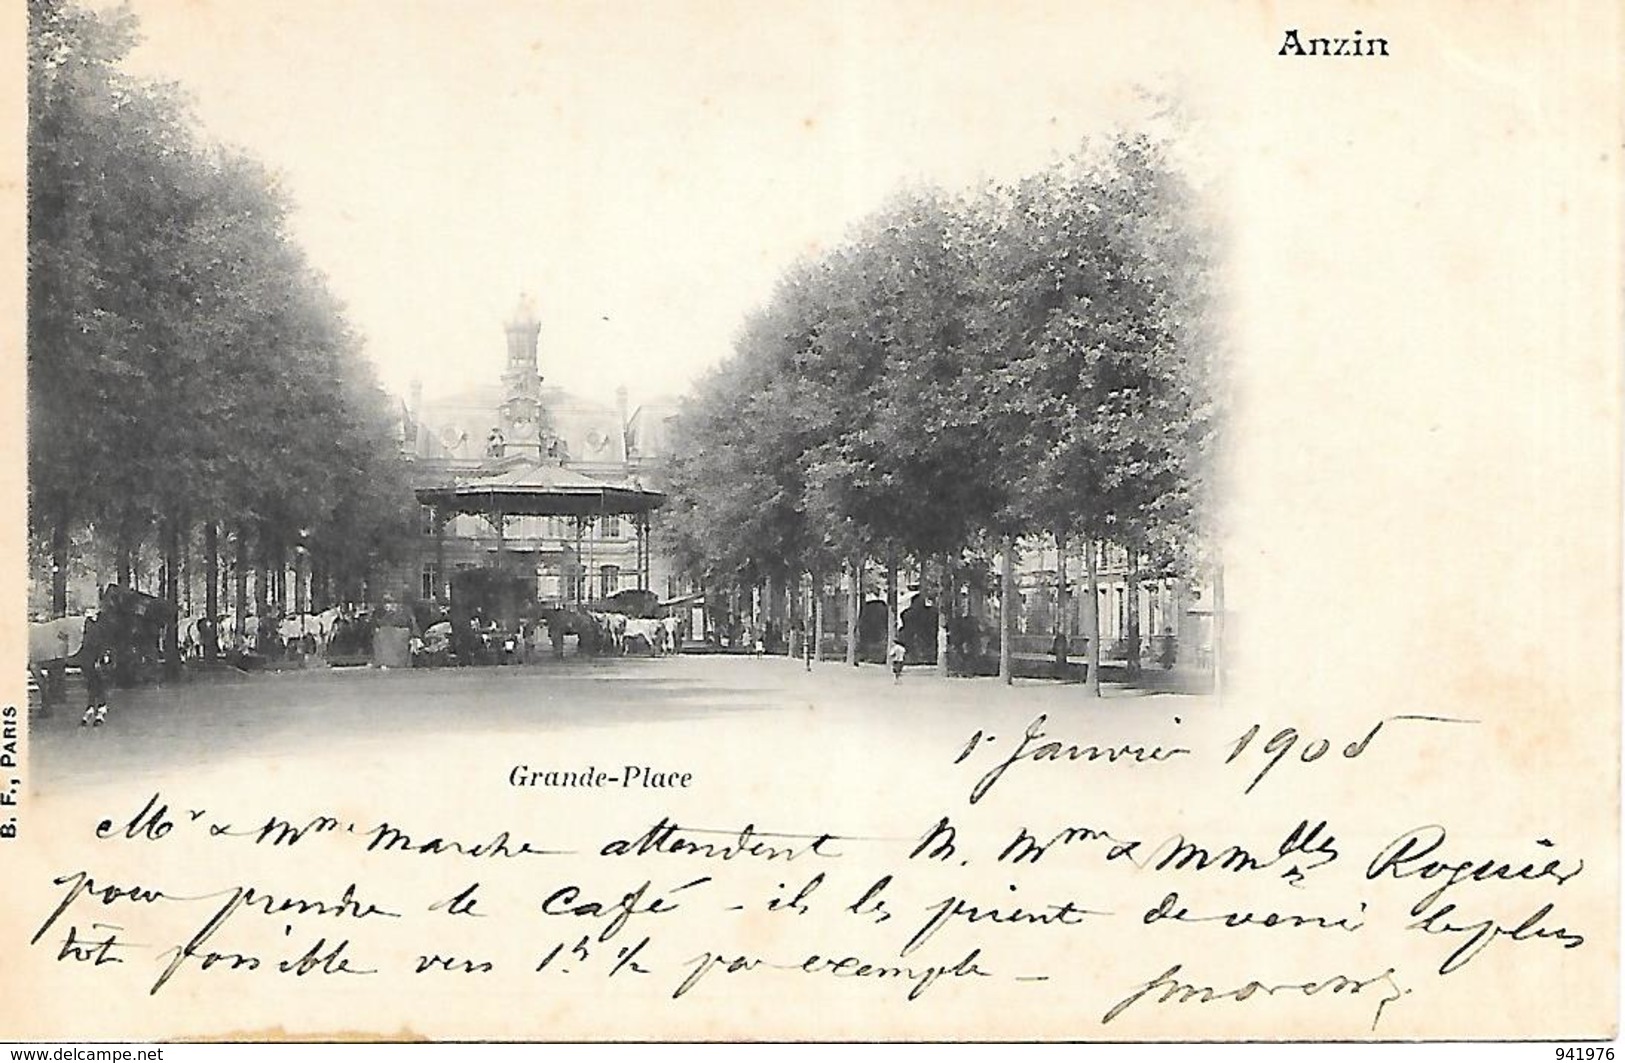 Anzin
B. F., PARIS
Grande-Place
1r Janvier 1905
Mr & Mme Marche attendent M. Mme & Mmelles Roguier
pour prendre le café - ils les prient de venir le plus
tôt possible vers 1h 1/2 par exemple -
www.delcampe.net
941976